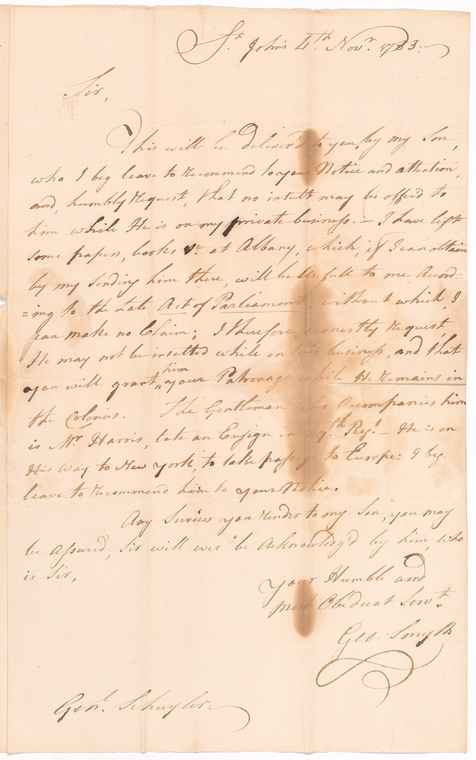 St. John's 4th. Novr. 1783.
Sir,
This will be deliver'd to you, by my Son,
who I beg leave to recommend to your Notice and attention,
and, humbly request, that no insult may be offerd to
him while He is on my private business. — I have left
some papers, books &c. at Albany, which, if I can obtain
by my sending him there, will be usefull to me Accord=
=ing to the Late Act of Parliament, without which, I
can make no Claim; I therefore, earnestly Request
He may not be insulted while on this business, and that
you will grant him your Patronage while He Remains in
the Colonies. The Gentleman who Accompanies him
is Mr. Harris, late an Ensign in Regt. He is on
His way to New york, to take passage to Europe: I beg
leave to recommend him to your Notice.
Any Services you render to my Son, you may
be assured, Sir will ever be Acknowledg'd by him, who
is Sir,
Your Humble and
most Obedient Servt.
Geo. Smyth
Genl. Schuyler